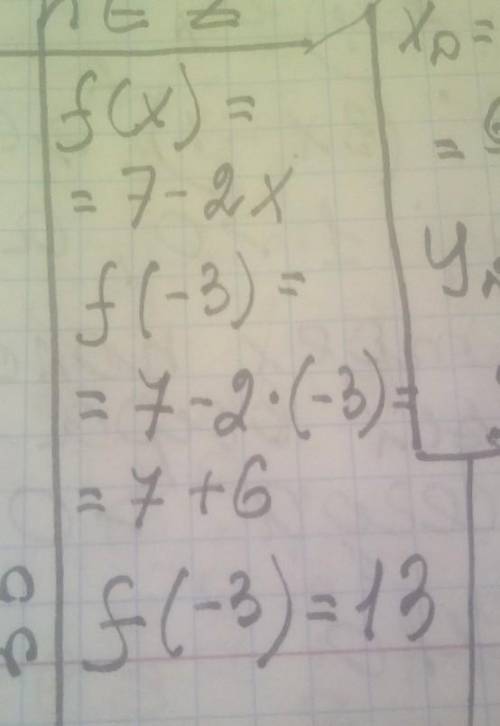 n ∈ Z
f(x) =
= 7 - 2x
f(-3) =
= 7 - 2 · (-3) =
= 7 + 6
f(-3) = 13
x_D =
=
y